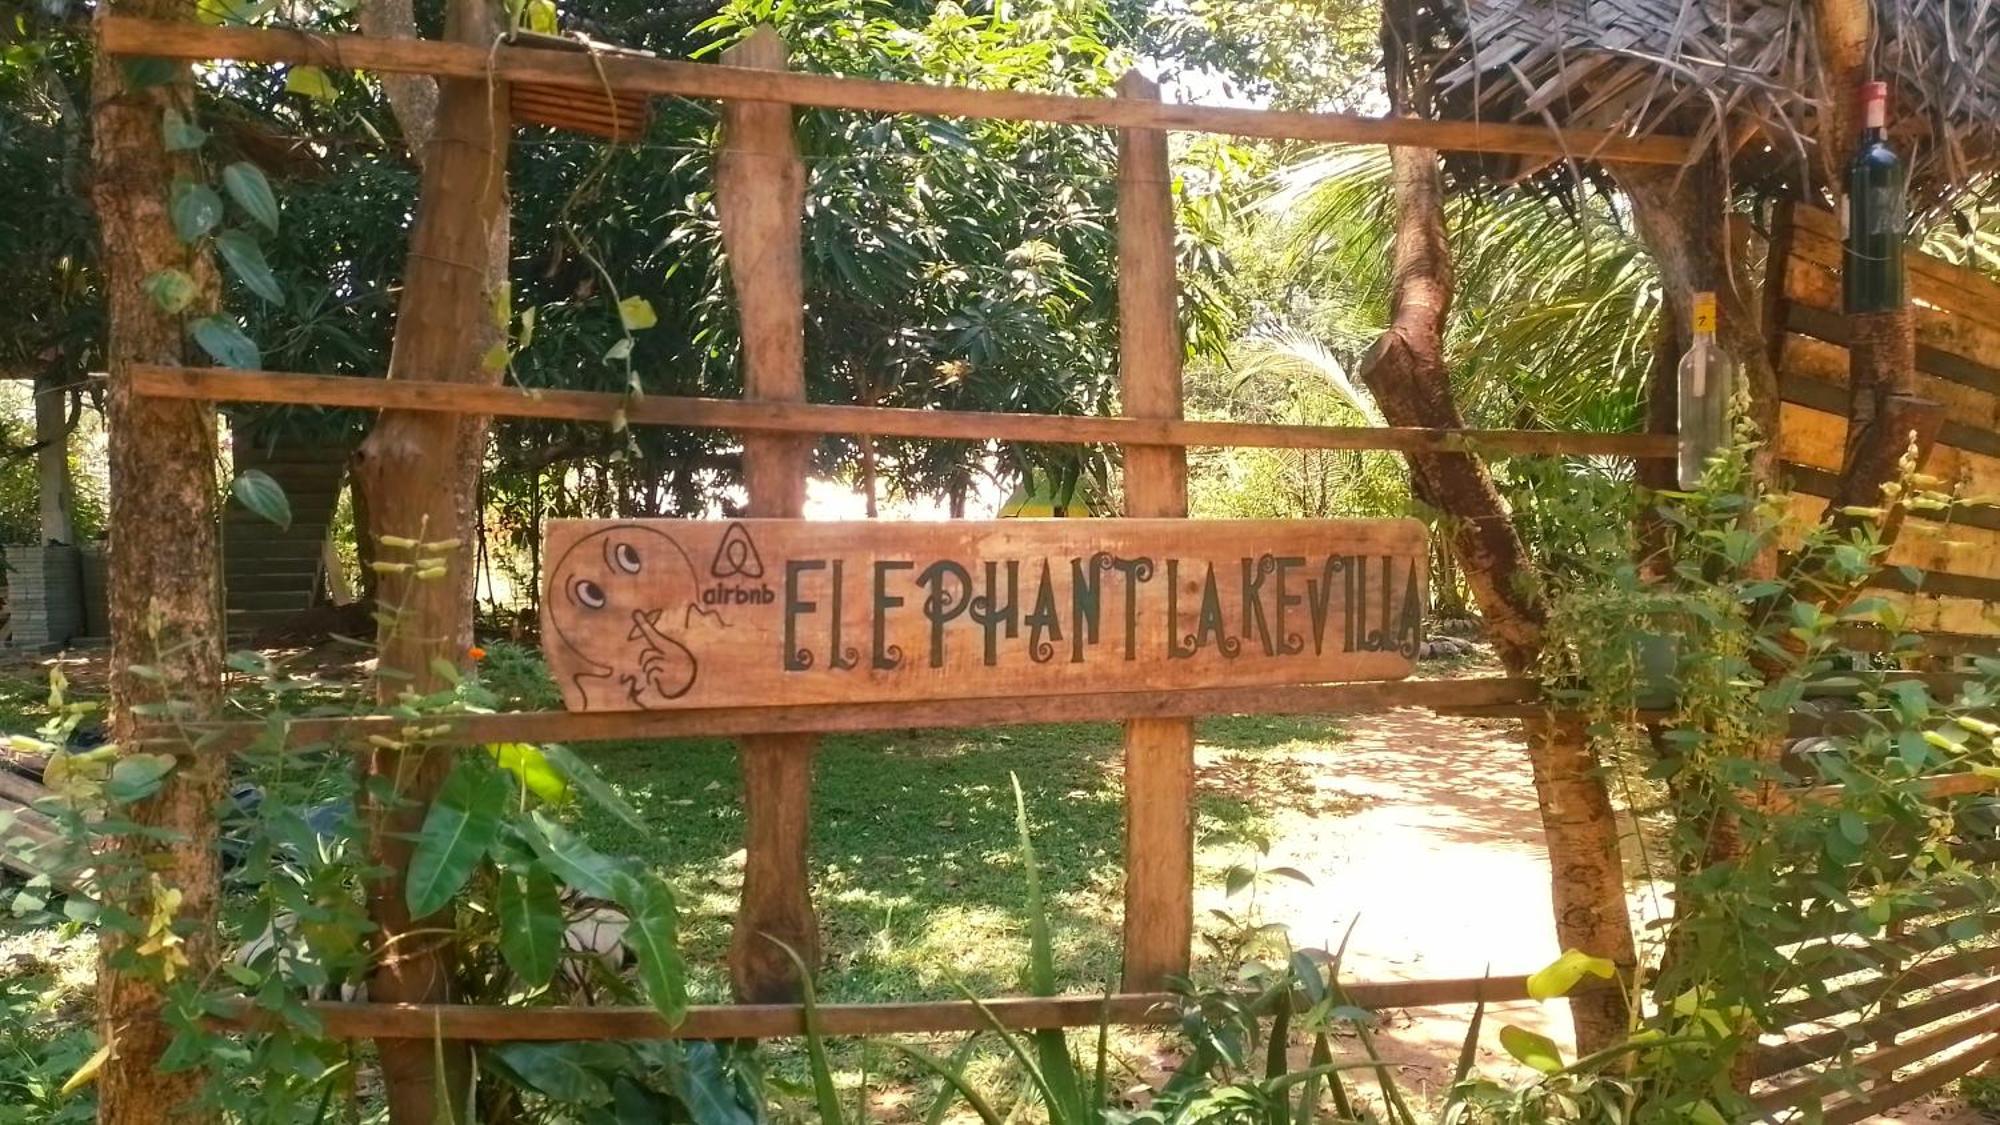 airbnb
ELEPHANT LAKE VILLA